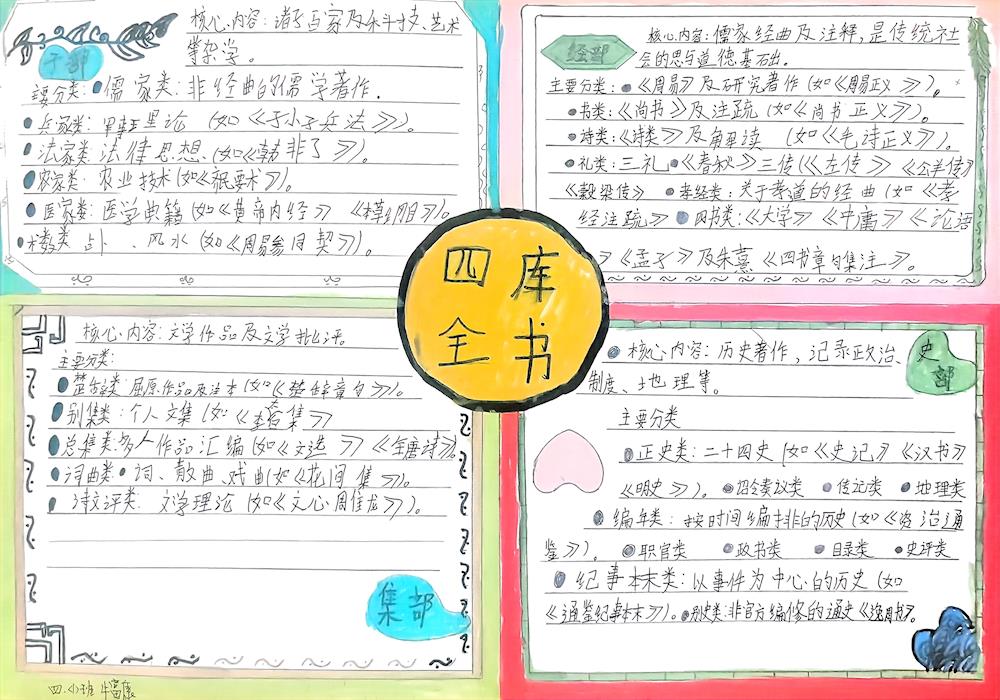 子部
核心内容：诸子百家及术数、艺术
等杂学。
主要分类：●儒家类：非经典的儒学著作．
●兵家类：军事理论（如《孙子兵法》）。
●法家类：法律思想、（如《韩非子》）。
●农家类：农业技术（如《祝要术》）。
●医家类：医学典籍（如《黄帝内经》《本草纲目》）。
●术数类 占卜、风水（如《周易参同契》）。
经部
核心内容：儒家经典及注释，是传统社
会的思与道德基石出．
主要分类：●《周易》及研究著作（如《周易正义》）。
●书类：《尚书》及注疏（如《尚书正义》）。
●诗类：《诗类》及解读（如《毛诗正义》）。
●礼类：三礼●《春秋》三传（《左传》《公羊传》
《榖梁传》●孝经类：关于孝道的经典（如《孝
经注疏》●四书类：《大学》《中庸》《论语
》《孟子》及朱熹《四书章句集注》。
四库
全书
核心内容：文学作品及文学批评。
主要分类：
●楚辞类：屈原作品及注本（如《楚辞章句》）。
●别集类：个人文集（如《李太白集》
●总集类：多人作品汇编（如《文选》《全唐诗》。
●词曲类●词、散曲、戏曲（如《花间集》）。
●诗文评类．文学理论（如《文心雕龙》）。
集部
四．小班 牛富康
史部
●核心内容：历史著作，记录政治、
制度、地理等。
主要分类
●正史类：二十四史（如《史记》《汉书》
《明史》）。●诏令奏议类 ●传记类 ●地理类
●编年类：按时间编排的历史（如《资治通
鉴》）。●职官类 ●政书类 ●目录类 ●史评类
●纪事本末类：以事件为中心的历史（如
《通鉴纪事本末》）。●别史类：非官方编修的通史《逸周书》。